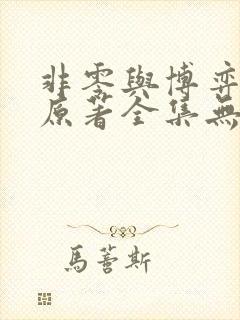 非零與博弈
原著全集無
馬薈斯